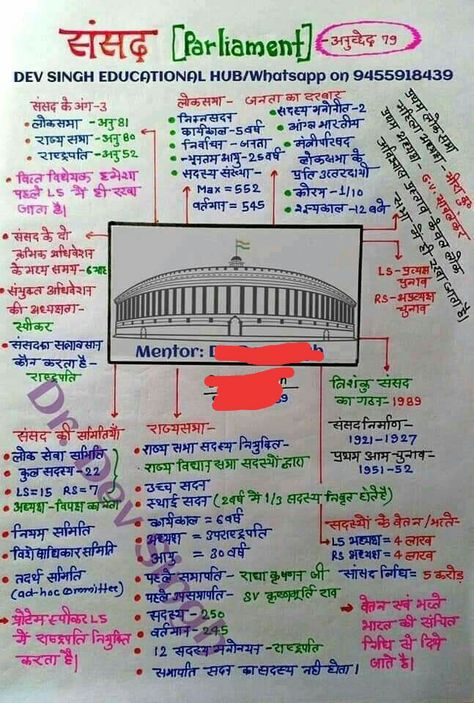 संसद [Parliament] -अनुच्छेद 79
DEV SINGH EDUCATIONAL HUB/Whatsapp on 9455918439
संसद के अंग-3
• लोकसभा - अनु 81
• राज्य सभा - अनु 80
• राष्ट्रपति - अनु 52
• वित्त विधेयक हमेशा
पहले LS में ही रखा
जाता है।
• संसद के दो
क्रमिक अधिवेशन
के मध्य समय- 6 माह
• संयुक्त अधिवेशन
की अध्यक्षता-
स्पीकर
• संसद का सत्रावसान
कौन करता है-
राष्ट्रपति
लोकसभा- जनता का दरबार
• निम्न सदन
• कार्यकाल - 5 वर्ष
• निर्वाचन - जनता
• न्यूनतम आयु - 25 वर्ष
• सदस्य संख्या-
Max = 552
वर्तमान = 545
• सदस्य मनोनीत - 2
आंग्ल भारतीय
• मंत्रीपरिषद
लोकसभा के
प्रति उत्तरदायी
• कोरम - 1/10
• शून्यकाल - 12 बजे
प्रथम लोक सभा
महिला अध्यक्ष- मीरा कुमार
प्रथम अध्यक्ष-
G.V. मावलंकर
अविश्वास प्रस्ताव केवल लोक
सभा में ही रखा जाता है।
LS - प्रत्यक्ष
चुनाव
RS - अप्रत्यक्ष
चुनाव
Mentor: D
त्रिशंकु संसद
का गठन - 1989
संसद निर्माण-
1921-1927
प्रथम आम चुनाव-
1951-52
संसद की समितियाँ
• लोक सेवा समिति
• कुल सदस्य - 22
• LS=15 RS=7
• अध्यक्ष - विपक्ष का नेता
• नियम समिति
• विशेषाधिकार समिति
• तदर्थ समिति
(ad-hoc committee)
• प्रोटेम स्पीकर LS
में राष्ट्रपति नियुक्ति
करता है।
राज्यसभा-
• राज्य सभा सदस्य नियुक्ति-
राज्य विधान सभा सदस्यों द्वारा
• उच्च सदन
• स्थाई सदन (2 वर्ष में 1/3 सदस्य निवृत होते है)
• कार्यकाल = 6 वर्ष
• अध्यक्ष = उपराष्ट्रपति
• आयु = 30 वर्ष
• पहले सभापति - राधा कृष्णन जी
• पहले उपसभापति - SV कृष्णमूर्ति राव
• सदस्य - 250
• वर्तमान - 245
• 12 सदस्य मनोनयन - राष्ट्रपति
• सभापति सदन का सदस्य नहीं होता।
सदस्यों के वेतन/भत्ते-
LS अध्यक्ष = 4 लाख
RS अध्यक्ष = 4 लाख
सांसद निधि = 5 करोड़
• वेतन एवं भत्ते
भारत की संचित
निधि से दिये
जाते है।
Dr. Dev Singh